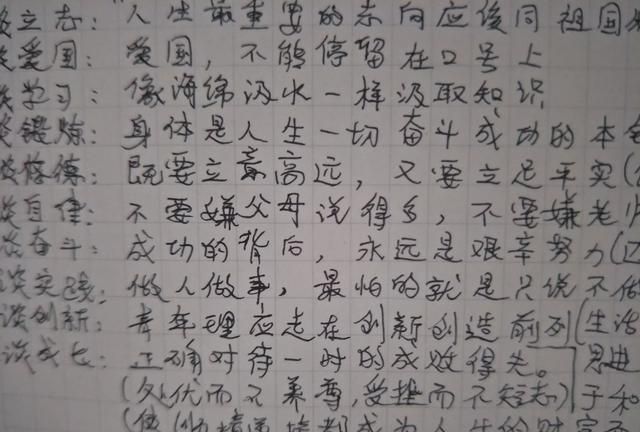 谈立志：“人生最重要的志向应该同祖国
谈爱国：爱国，不能停留在口号上
谈学习：像海绵汲水一样汲取知识
谈锻炼：身体是人生一切奋斗成功的本
谈修德：既要立意高远，又要立足平实（
谈自律：不要嫌父母说得多，不要嫌老师
谈奋斗：成功的背后，永远是艰辛努力（
谈实践：做人做事，最怕的就是只说不做
谈创新：青年理应走在创新创造前列（生活
谈成长：正确对待一时的成败得失。思进
（处优而不养尊，受挫而不短志）于和
成为人生的财富而